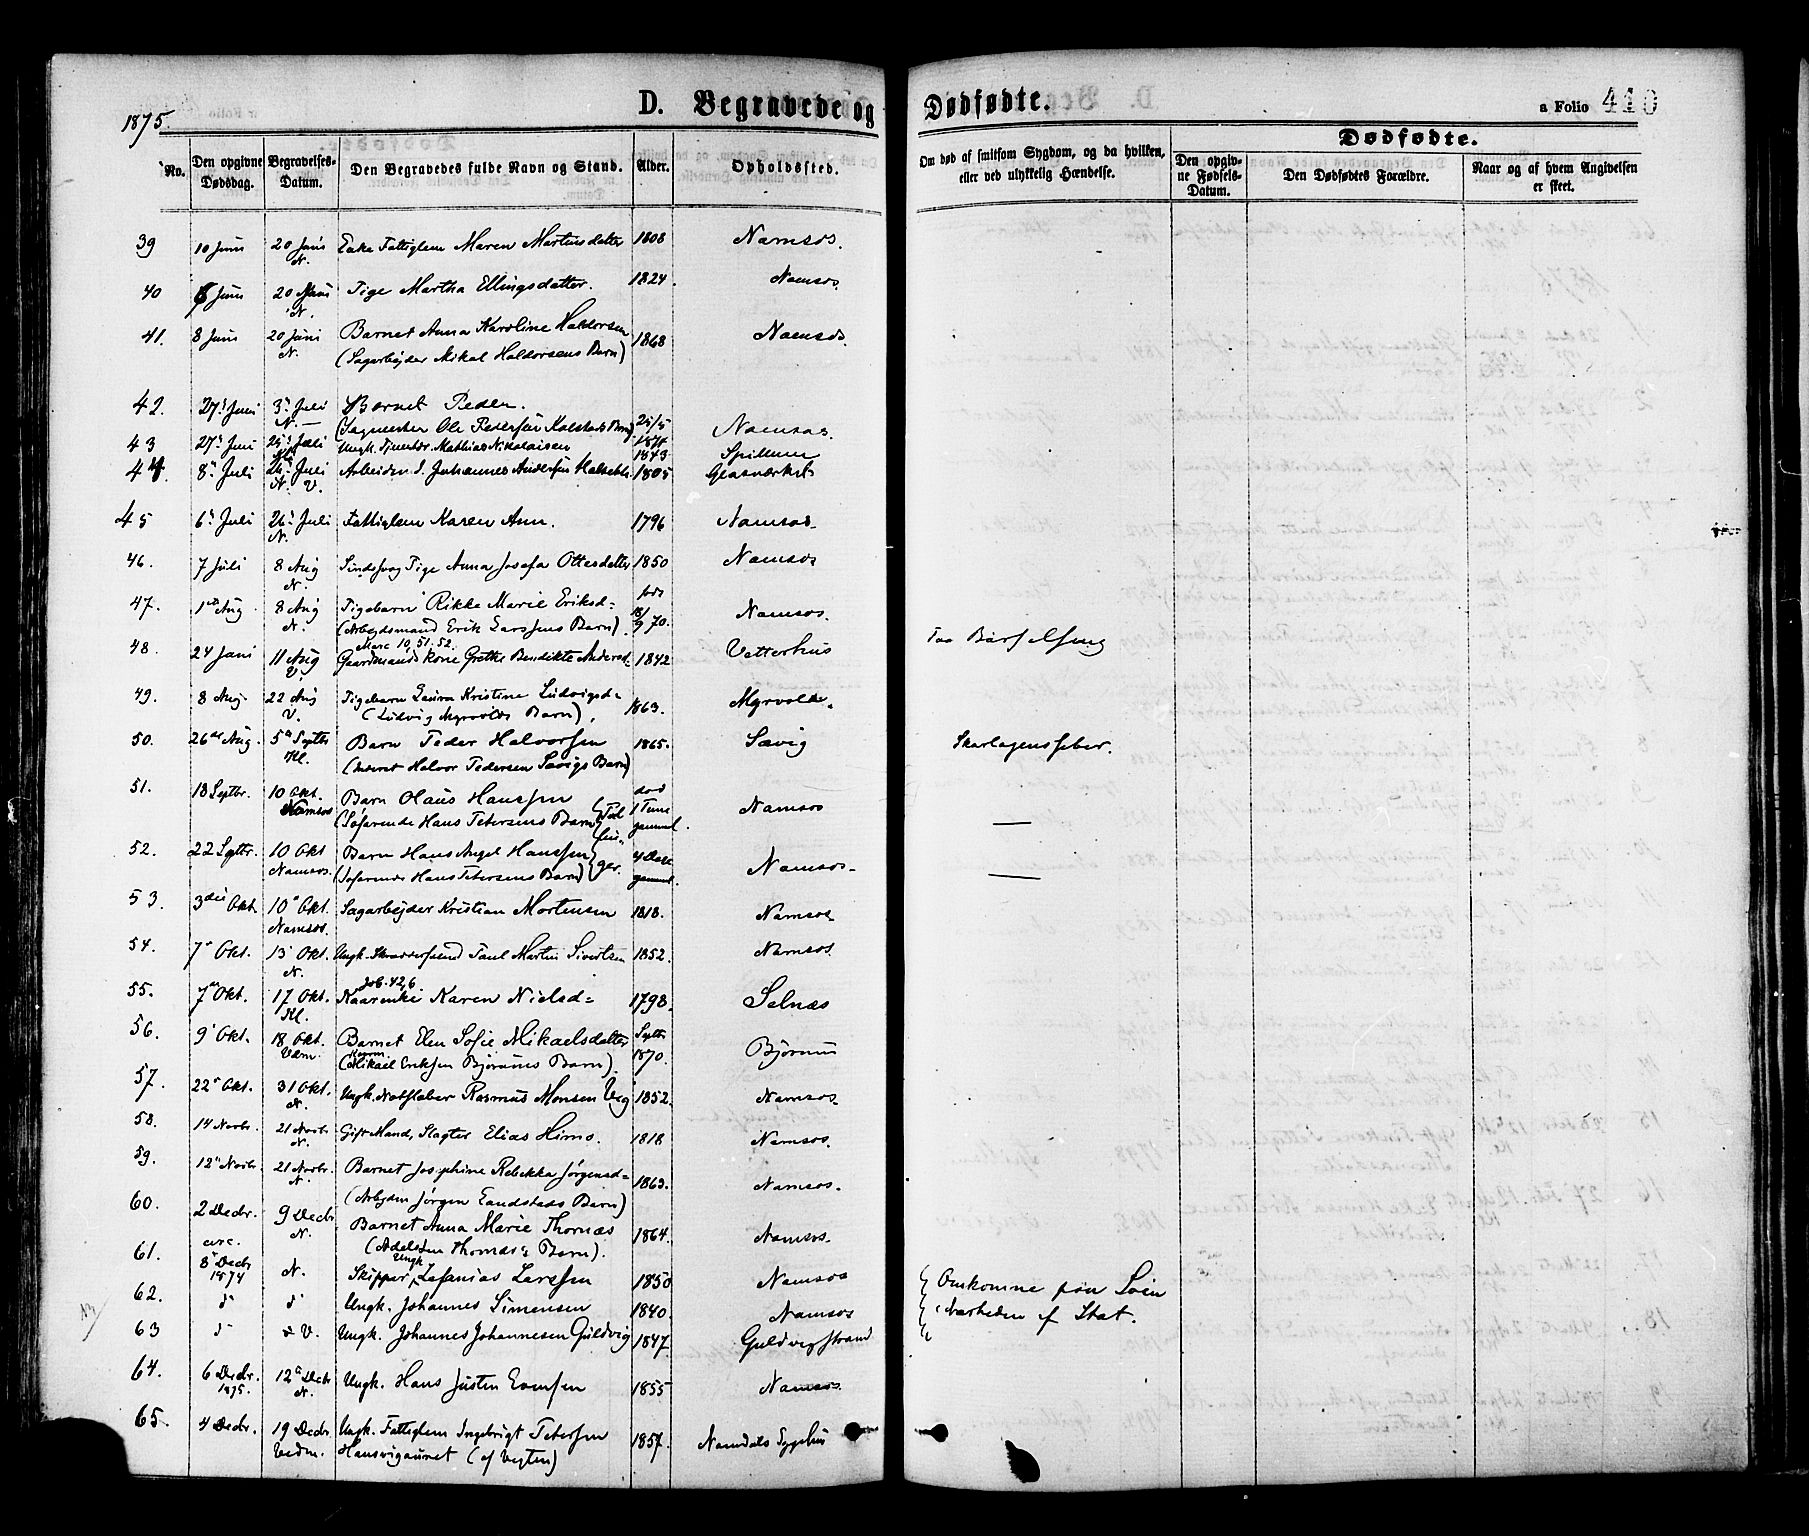 1875.
D. Begravede og Dødfødte.
a Folio 410
No.
Den opgivne Dødsdag.
Begravelses-Datum.
Den Begravedes fulde Navn og Stand.
Alder.
Opholdssted.
Om død af smitsom Sygdom, og da hvilken, eller ved ulykkelig Hændelse.
Dødfødte.
Den opgivne Fødsels-Datum.
Den Dødfødtes Forældre.
Naar og af hvem Angivelsen er skeet.
39 10 Juni 20 Juni Enke Fattiglem Maren Martinsdatter 1808 Namsos.
N.
40 6 Juni 20 Juni Pige Martha Ellingsdatter. 1824. Namsos
N.
41. 8 Juni 20 Juni Barnet Anna Karoline Haldorsen 1868 Namsos.
N. (Sagarbejder Mikal Haldorsens Barn)
42. 27' Juni 3' Juli Barnet Peder.
N. — (Sagmester Ole Pedersen Kolstads Barn) 25/5 1874 Namsos.
43 27' Juni 25' Juli Ungk. Tjener Mathias Nikolaisen 1843 Spillum
44. 8' Juli 26' Juli Arbeider J. Johannes Andersen 1805 Glasværket
N. V.
45 6' Juli 26' Juli Fattiglem Karen Ann. 1796 Namsos.
N.
46. 7 Juli 8 Aug Sindssvag Pige Anna Josefa Ottesdatter 1850 Namsos
N.
47. 1ste Aug. 8 Aug Pigebarn Rikke Marie Eriksd= født 18/9 70. Namsos.
N. (Arbejdsmand Erik Larssens Barn).
Marc 10, 51. 52.
48. 24 Juni 11 Aug Gaardmandskone Grethe Benedikte Andersd= 1842 Vetterhus Paa Barselseng
V.
49. 8 Aug. 22 Aug Pigebarn Laura Kristine Ludvigsd= 1863. Myrvold.
V. (Ludvig Myrvolds Barn),
50. 26de Aug. 5te Septbr Barn Peder Halvorsen 1865. Sævig Skarlagensfeber.
Kl. (Inderst Halvor Pedersen Sævigs Barn)
51. 18 Septbr. 10 Okt. Barn Olaus Hanssen død 1 Time gammel. Namsos —
Namsos (Søfarende Hans Petersens Barn) Tvil-
52. 22 Septbr. 10 Okt Barn Hans Angel Hanssen lin- 4 Dage gammel. Namsos. —
Namsos. (Søfarende Hans Petersens Barn) ger.
53. 3die Okt. 10' Okt. Sagarbejder Kristian Mortensen 1818. Namsos.
Namsos.
54. 7' Okt. 13' Okt. Ungk. Skræddersvend Paul Martin Sivertsen 1852. Namsos.
N.
Job. 42,6
55. 7de Okt. 17 Okt. Kaarenke Karen Nielsd= 1798. Selnæs
Kl.
56. 9' Okt. 18 Okt. Barnet Elen Sofie Mikaelsdatter Septbr 1870. Bjørum
Vedm. (Mikael Eriksen Bjørums Barn).
57. 22' Okt. 31 Okt. Ungk. Rasmus Monsen Veg 1852. Namsos.
N.
58. 14 Novbr. 21 Novbr Gift Mand, Slagter Elias Himo. 1818 Namsos.
N.
59. 12' Novbr. 21 Novbr. Barnet Josephine Rebekka Jørgensd= 1863. Namsos.
N. (Arbejder Jørgen Landstads Barn)
60. 2 Decbr. 9 Decbr Barnet Anna Marie Thornæs 1864. Namsos.
N. (Thornæs's Barn).
61. circ. 8' Decbr 1874 N. Skipper, Ungk. Zefanias Larssen 1850 Namsos Omkomne paa Søen
62. d' d' Ungk. Johannes Simensen 1840. Namsos i Nærheden af Stat.
63 d' d V. Ungk. Johannes Johannesen Guldvig 1847. Guldvigstrand
64. 6 Decbr. 1875. 12te Decbr Ungk. Hans Justin Evensen 1855 Namsos
N.
65. 4 Decbr. 19 Decbr. Ungk. Fattiglem Ingebrigt Petersen 1857. Namdals Sygehus
Vedm. (af Vigten)